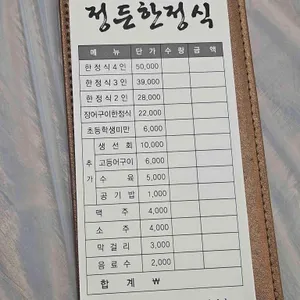 정든한정식
메뉴 단가 수량 금액
한정식4인 50,000
한정식3인 39,000
한정식2인 28,000
장어구이한정식 22,000
초등학생미만 6,000
추가
생선회 10,000
고등어구이 6,000
수육 5,000
공기밥 1,000
맥주 4,000
소주 4,000
막걸리 3,000
음료수 2,000
합계 ₩